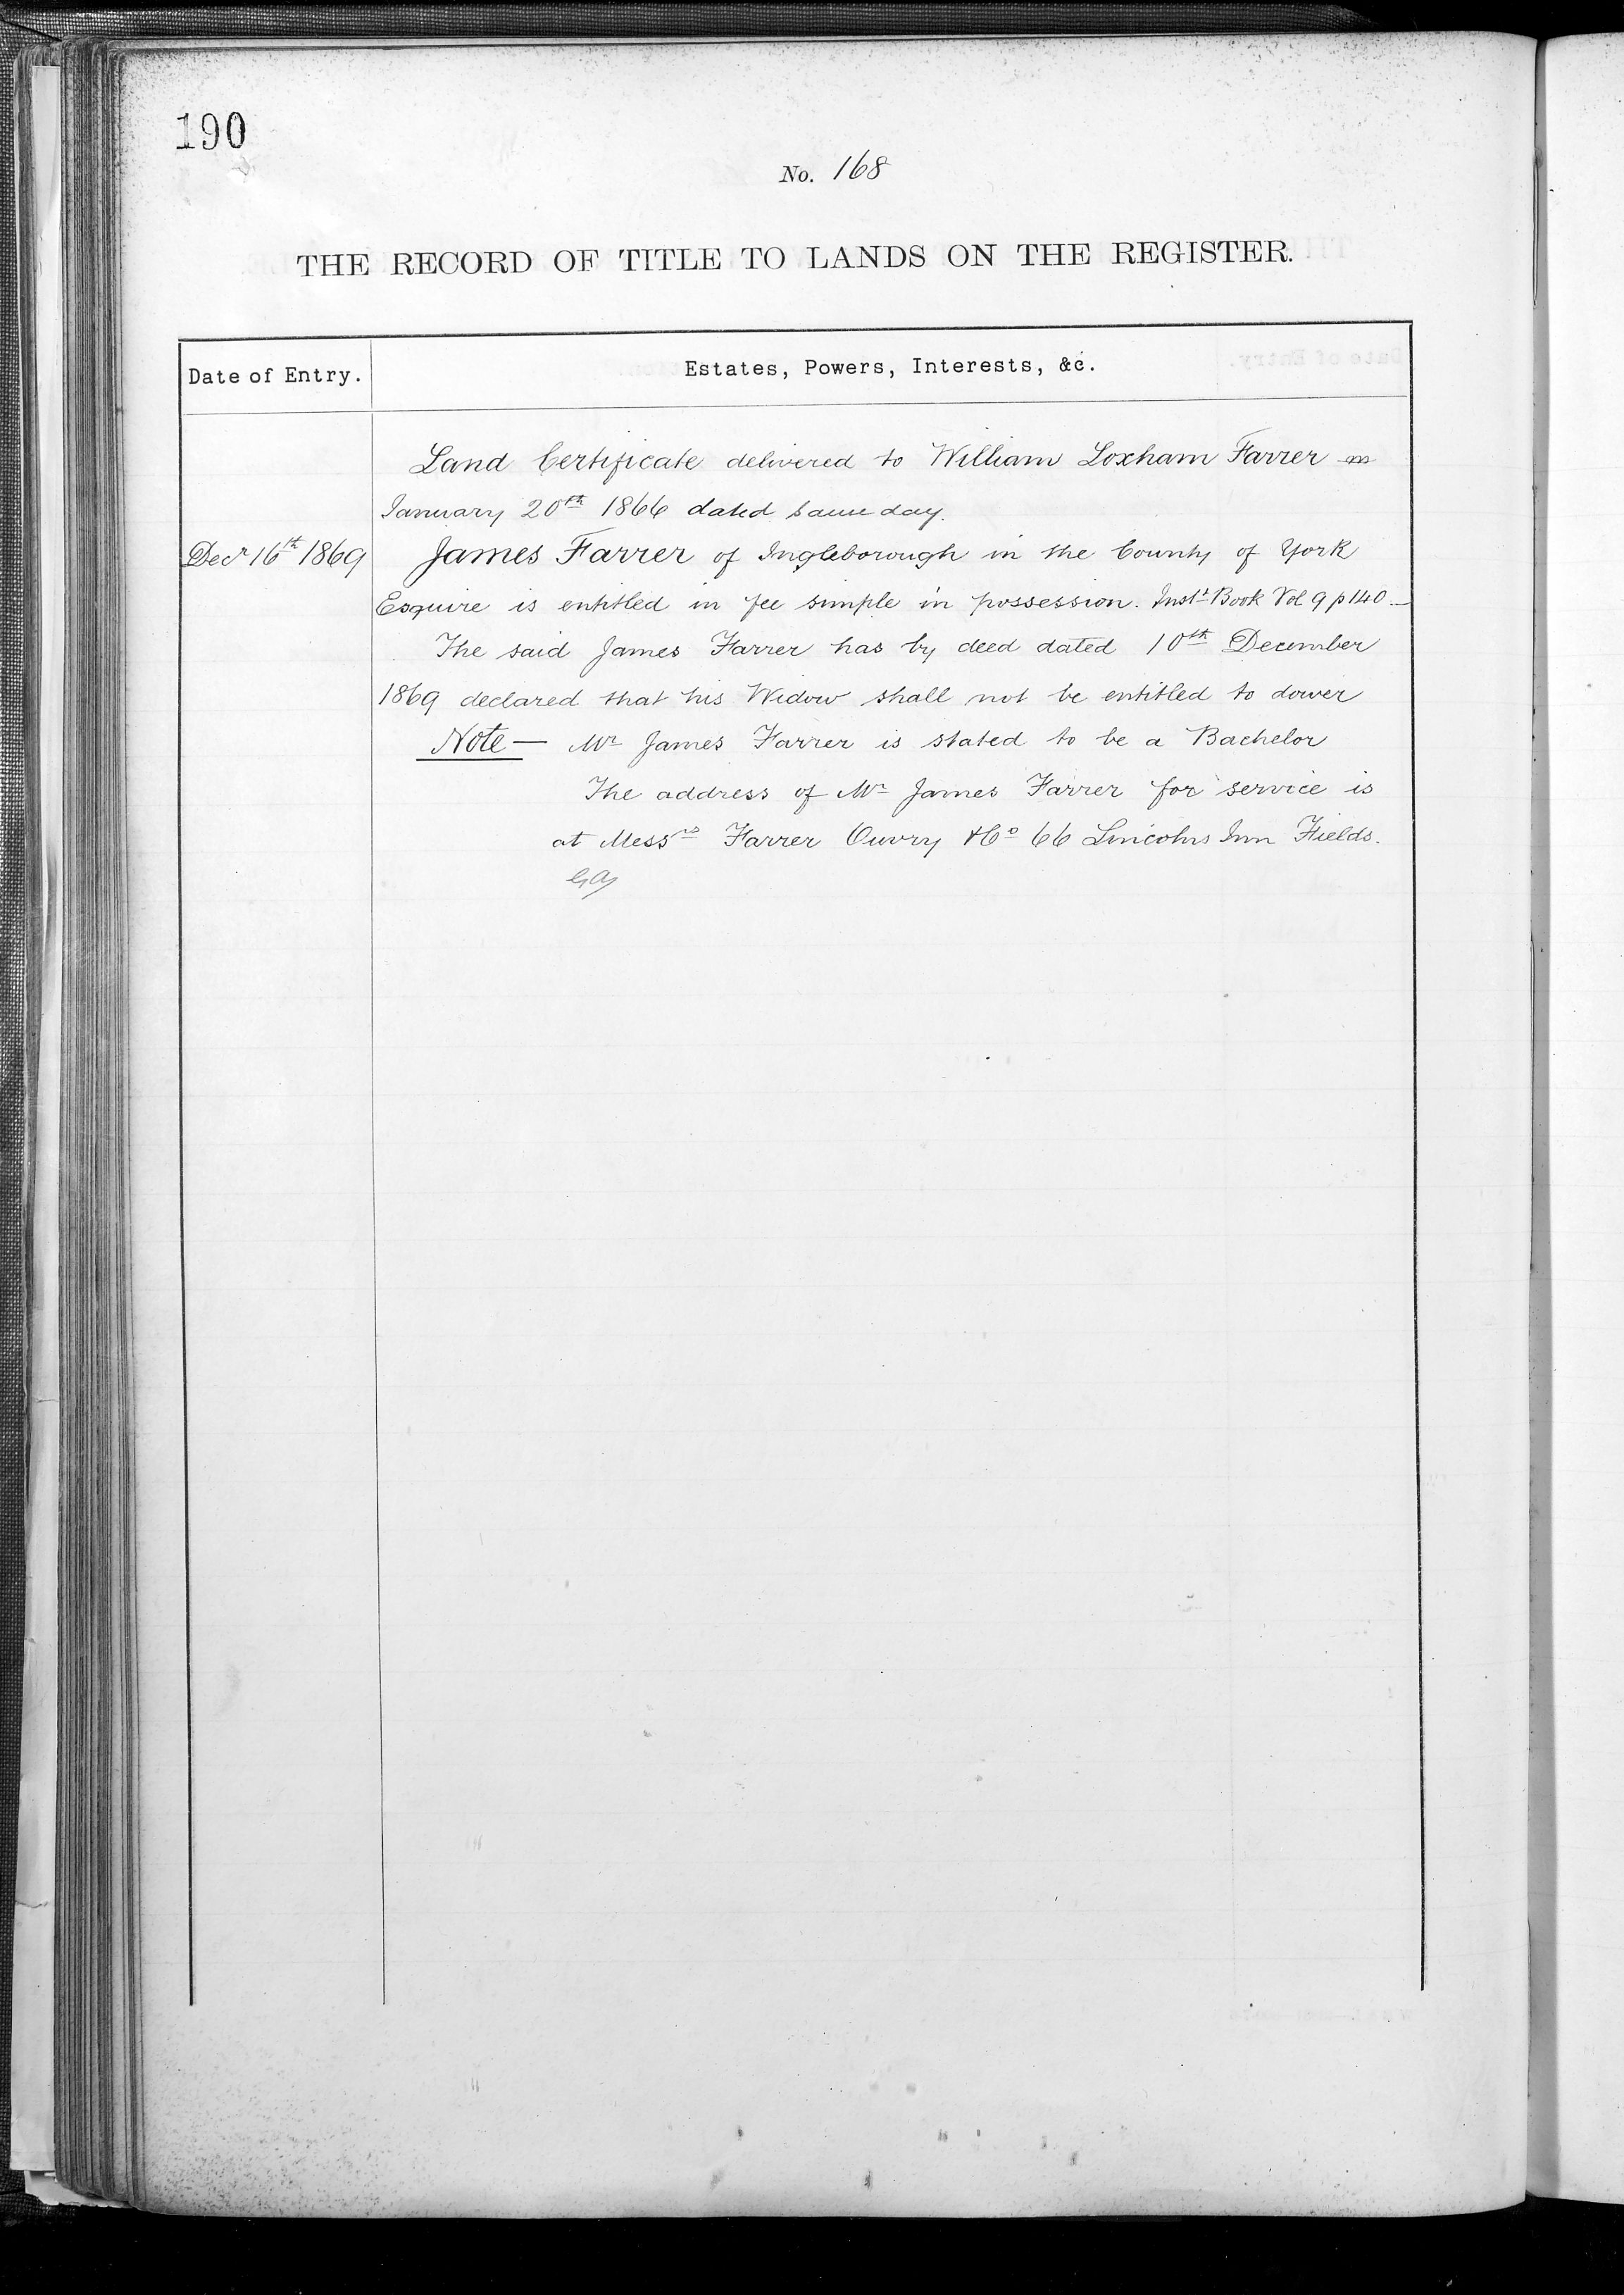 190
No. 168
THE RECORD OF TITLE TO LANDS ON THE REGISTER.
Date of Entry.
Estates, Powers, Interests, &c.
Land Certificate delivered to William Loxham Farrer on
January 20th 1866 dated same day.
Decr 16th 1869
James Farrer of Ingleborough in the County of York
Esquire is entitled in fee simple in possession. Instt Book Vol 9 p 140 —
The said James Farrer has by deed dated 10th December
1869 declared that his Widow shall not be entitled to dower
Note — Mr James Farrer is stated to be a Bachelor
The address of Mr James Farrer for service is
at Messrs Farrer Ouvry & Co 66 Lincolns Inn Fields.